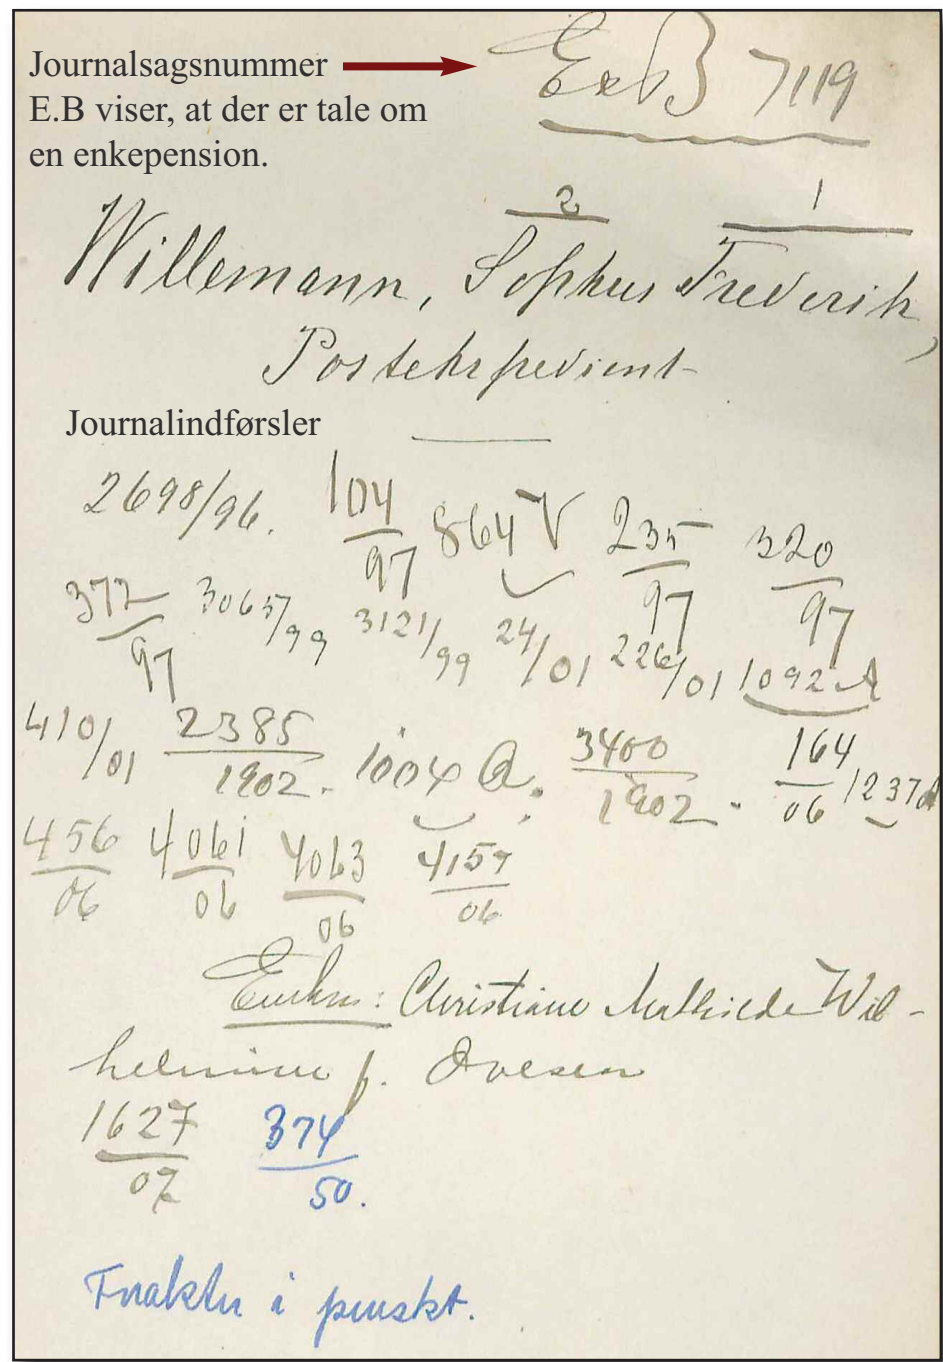 Journalsagsnummer
E.B viser, at der er tale om
en enkepension.
ExB 7119
2 1
Willemann, Sophus Frederik,
Postekspedient
Journalindførsler
2698/96. 104/97 864 V 235/97 320/97
372/97 3065/99 3121/99 24/01 226/01 1092 A
410/01 2385/1902. 1004 a. 3400/1902. 164/06 1237 A
456/06 4061/06 4063/06 4157/06
Enken: Christiane Mathilde Wil-
helmine f. Ovesen
1627/07 374/50.